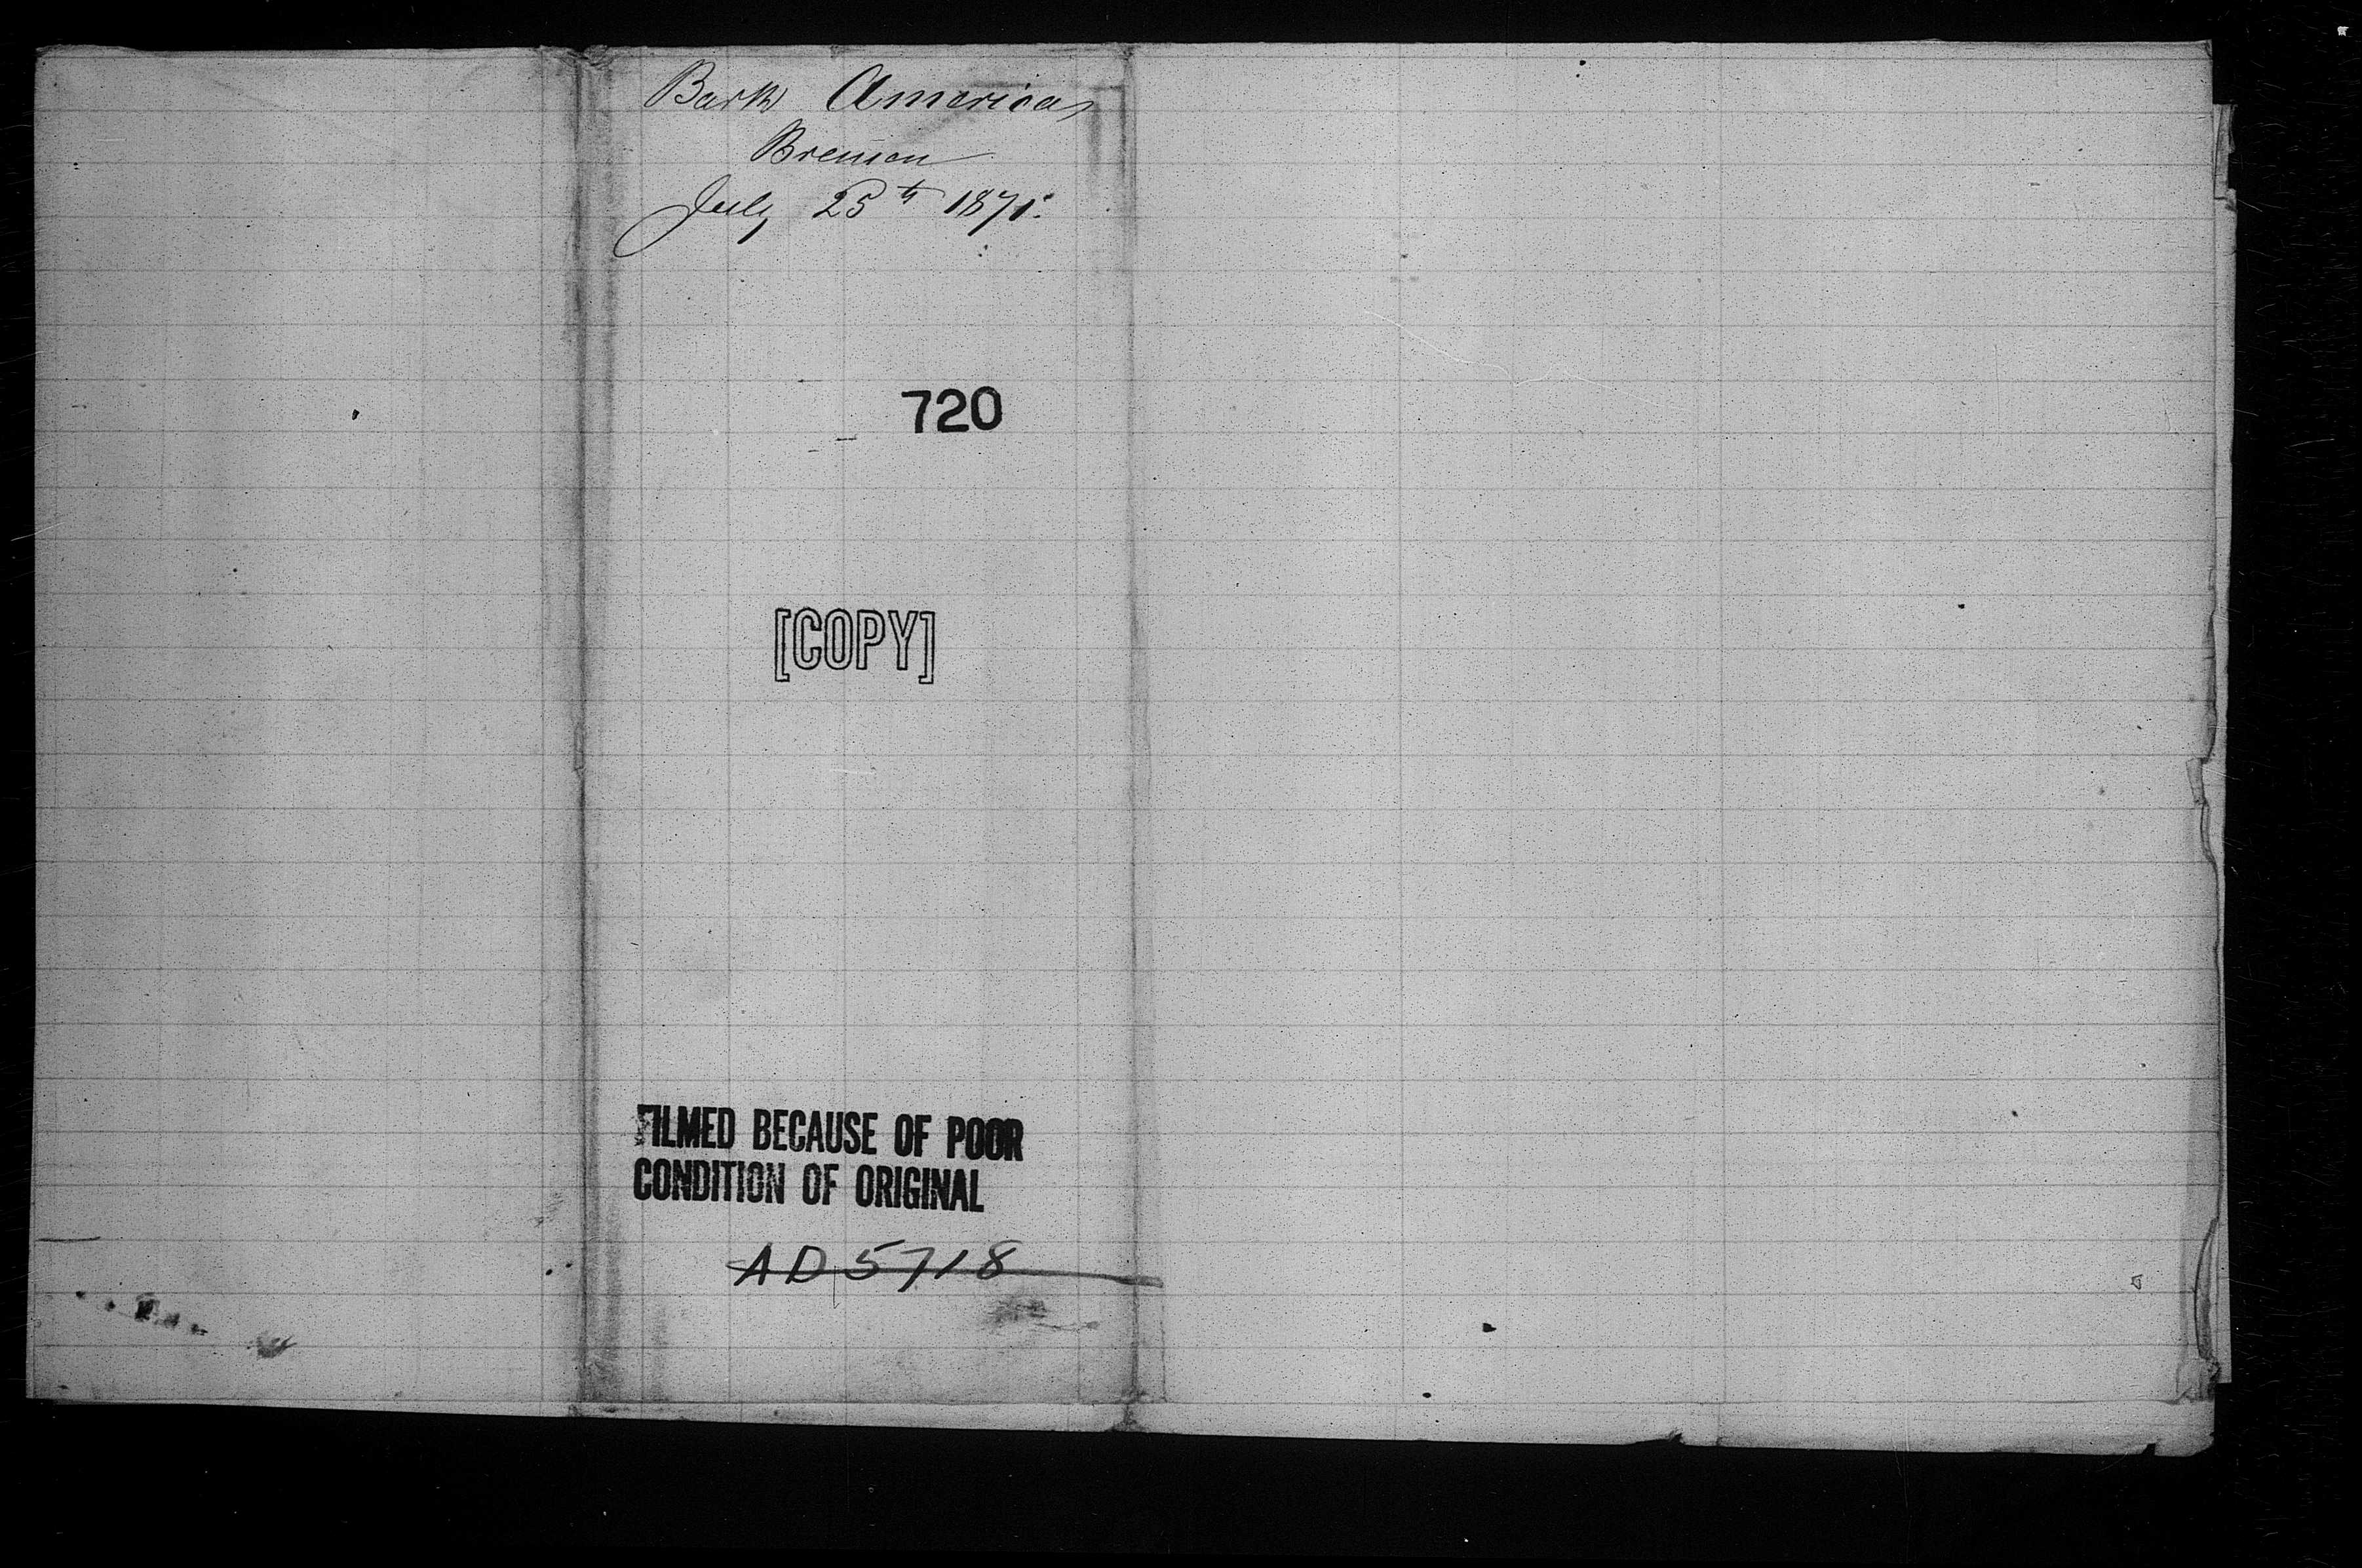 Bark America
Bremen
July 25th 1871.
720
[COPY]
FILMED BECAUSE OF POOR
CONDITION OF ORIGINAL
AD5718